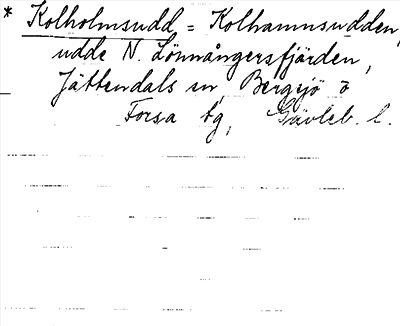 * Kolholmsudd = Kolhamnsudden,
udde N. Lönnångersfjärden,
Jättendals sn, Bergsjö o
Forsa tg, Gävleb. l.